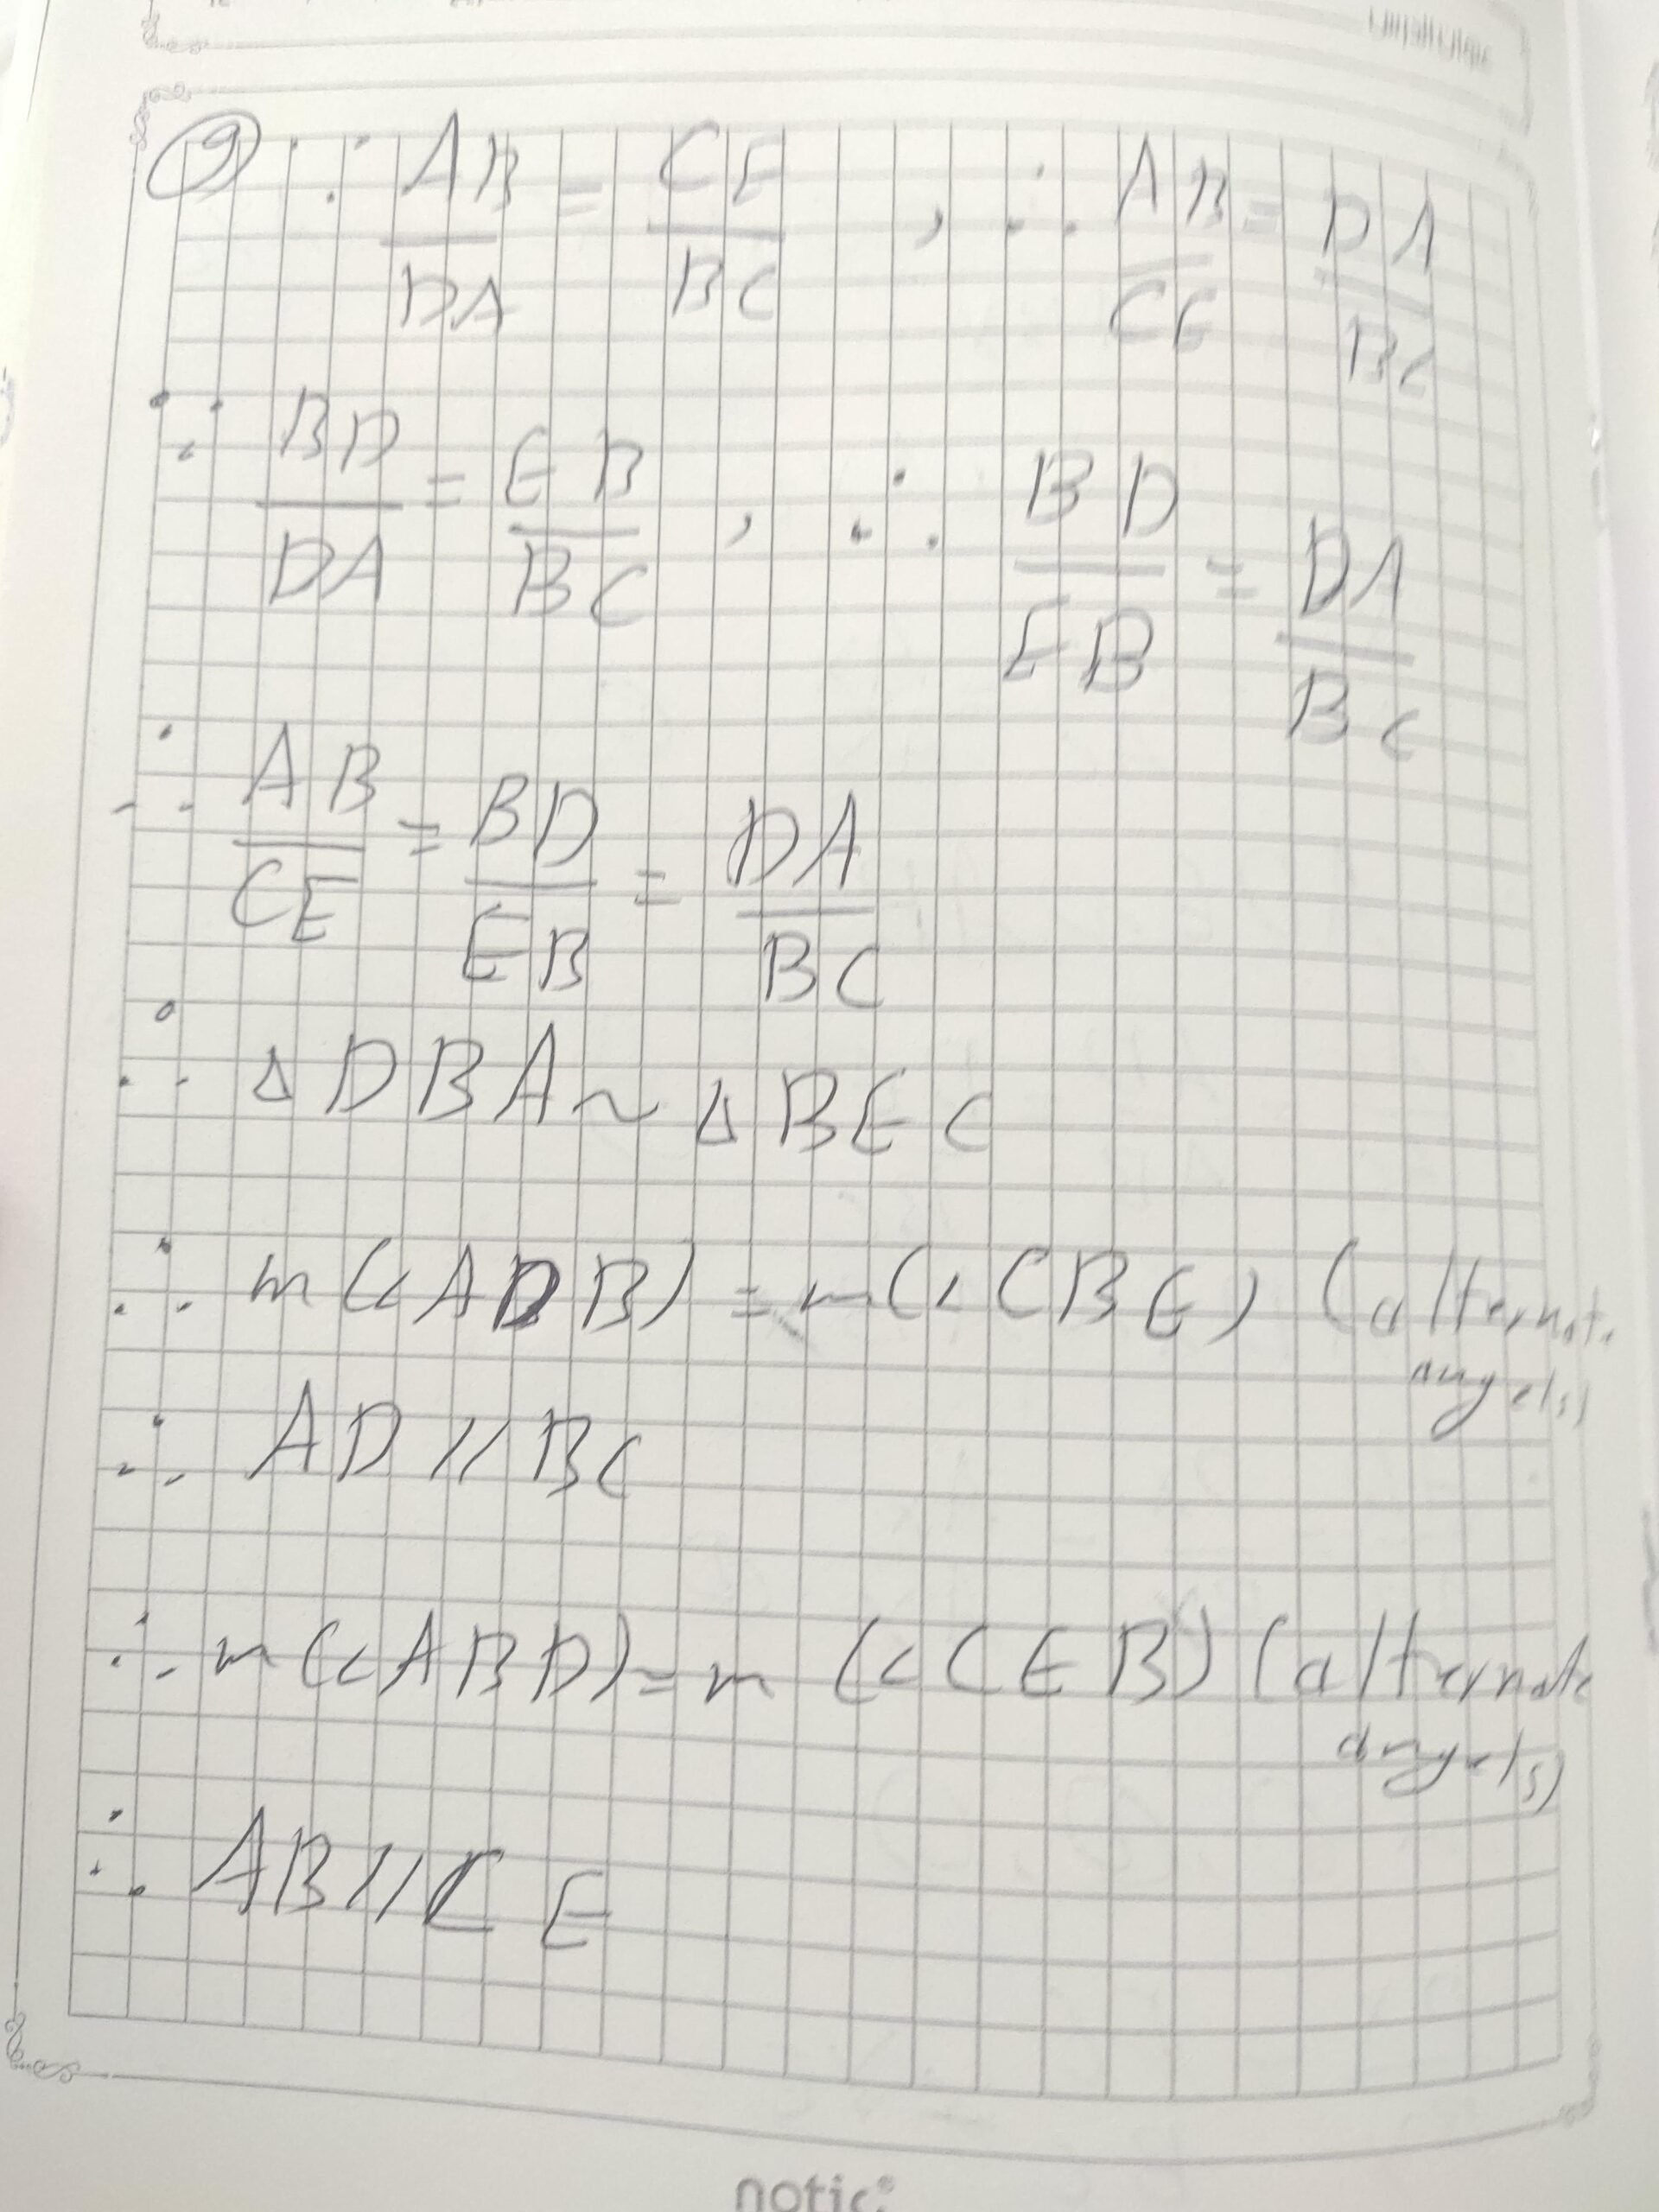 9 ∵ AB/DA = CE/BC , ∴ AB/CE = DA/BC
∵ BD/DA = EB/BC , ∴ BD/EB = DA/BC
∴ AB/CE = BD/EB = DA/BC
∴ Δ DBA ~ Δ BEC
∴ m(∠ADB) = m(∠CBE) (alternate
angels)
∴ AD // BC
∴ m(∠ABD) = m(∠CEB) (alternate
angels)
∴ AB // CE
notic